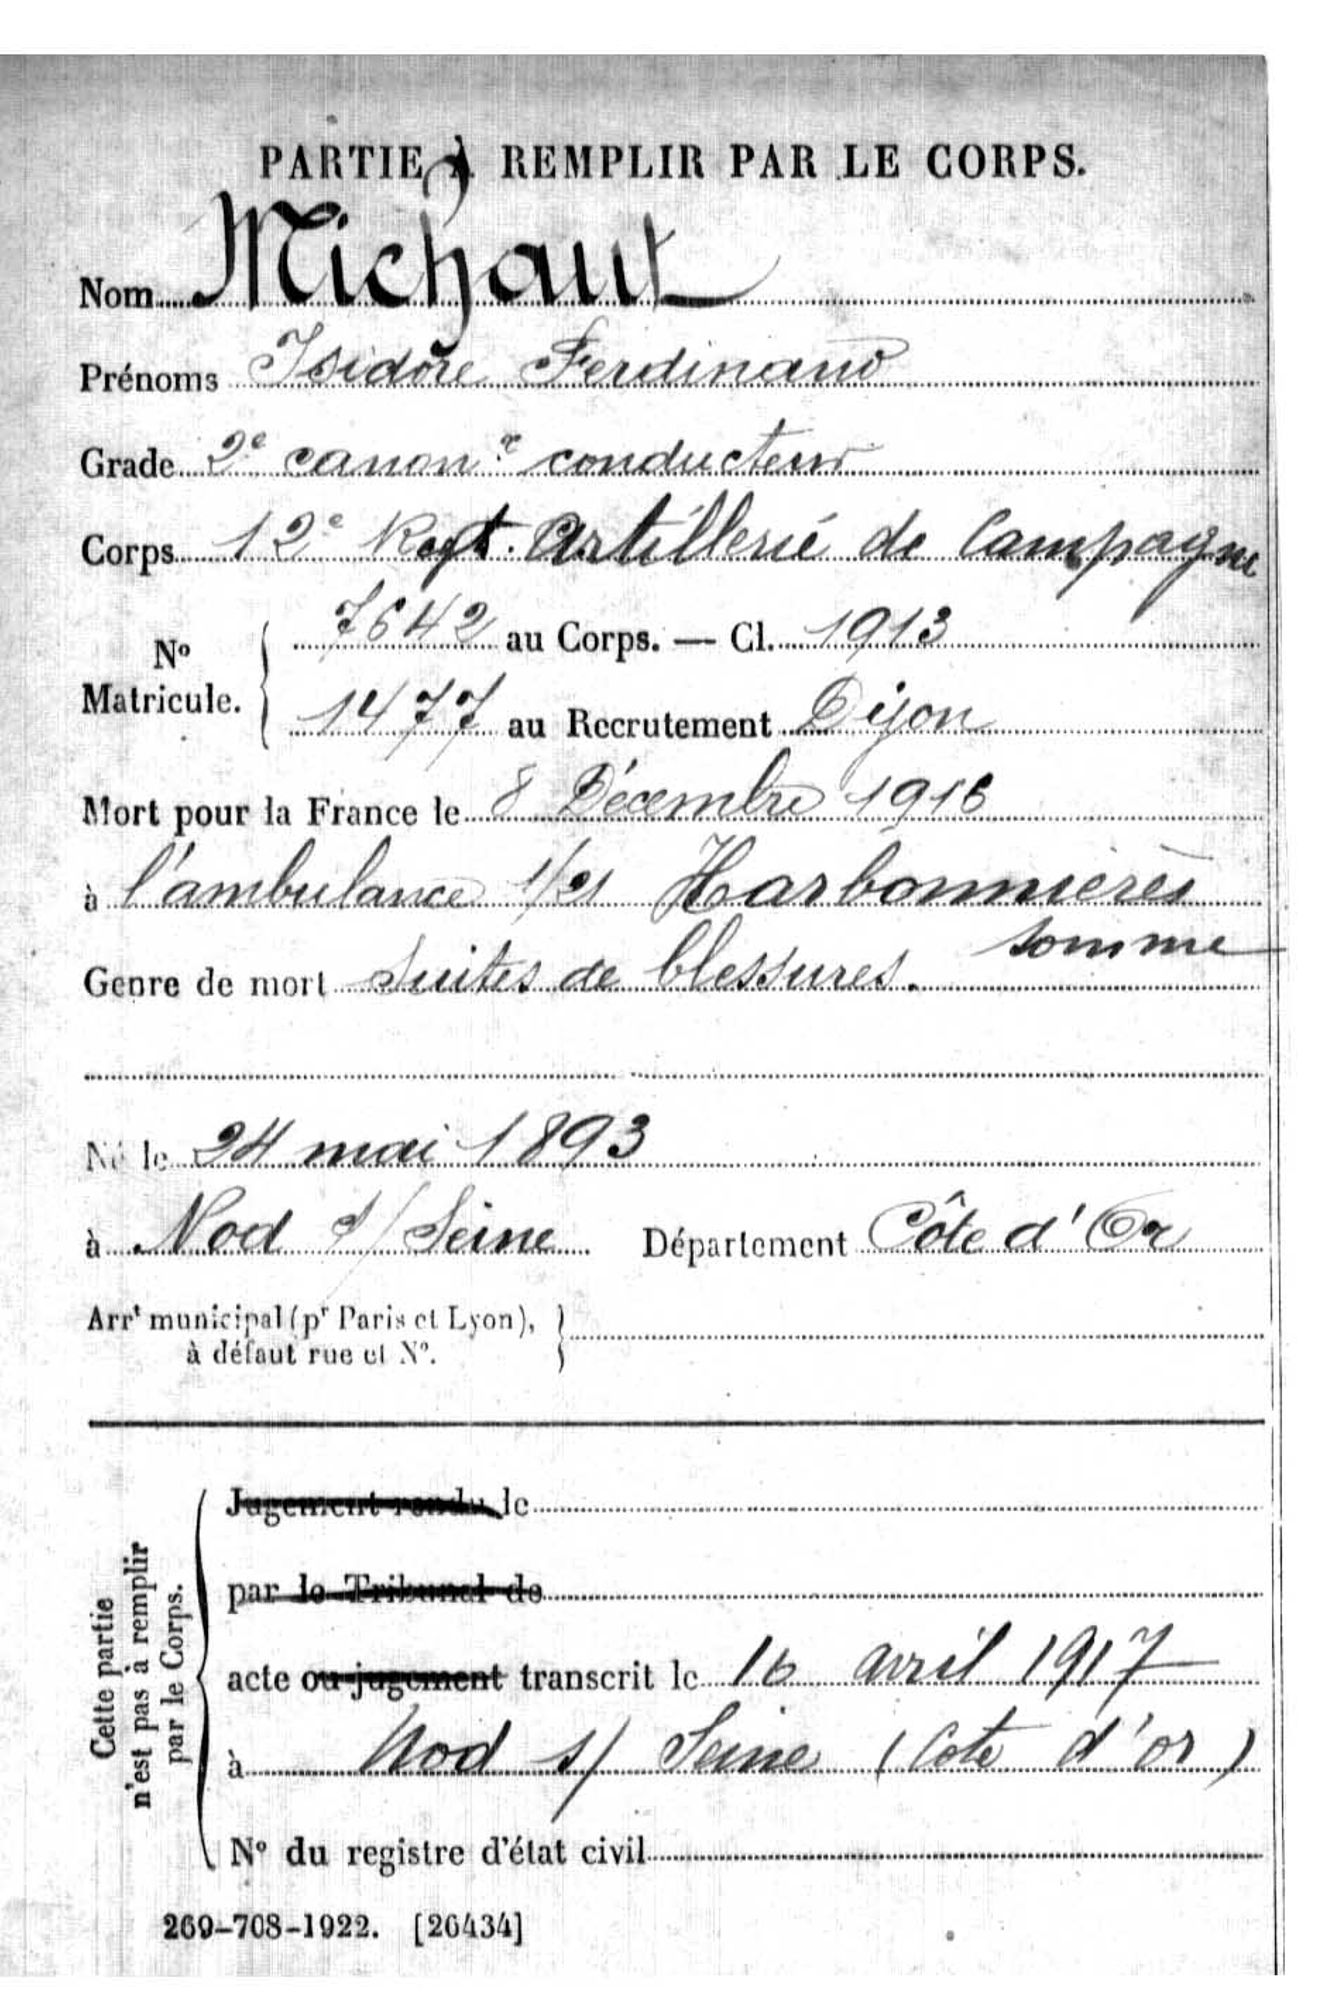 PARTIE À REMPLIR PAR LE CORPS.
Nom Michaut
Prénoms Isidore Ferdinand
Grade 2e canonr conducteur
Corps 12e Regt. Artillerie de Campagne
No Matricule. 7642 au Corps. — Cl. 1913
1477 au Recrutement Dijon
Mort pour la France le 8 Décembre 1916
à l'ambulance 1/21 Harbonnières
Somme
Genre de mort suites de blessures.
Né le 24 mai 1893
à Nod s/ Seine Département Côte d'Or
Arrt municipal (pr Paris et Lyon),
à défaut rue et No.
Cette partie
n'est pas à remplir
par le Corps.
Jugement rendu le
par le Tribunal de
acte ou jugement transcrit le 16 avril 1917
à Nod s/ Seine (Cote d'or)
No du registre d'état civil
269-708-1922. [26434]